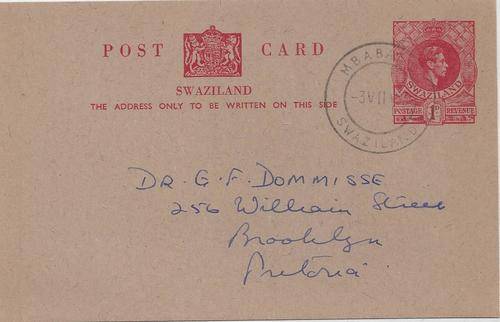 POST CARD
SWAZILAND
THE ADDRESS ONLY TO BE WRITTEN ON THIS SIDE
SWAZILAND
POSTAGE 1D REVENUE
MBABA
-3 VII
SWAZILAND
DR. G. F. DOMMISSE
256 William Street
Brooklyn
Pretoria